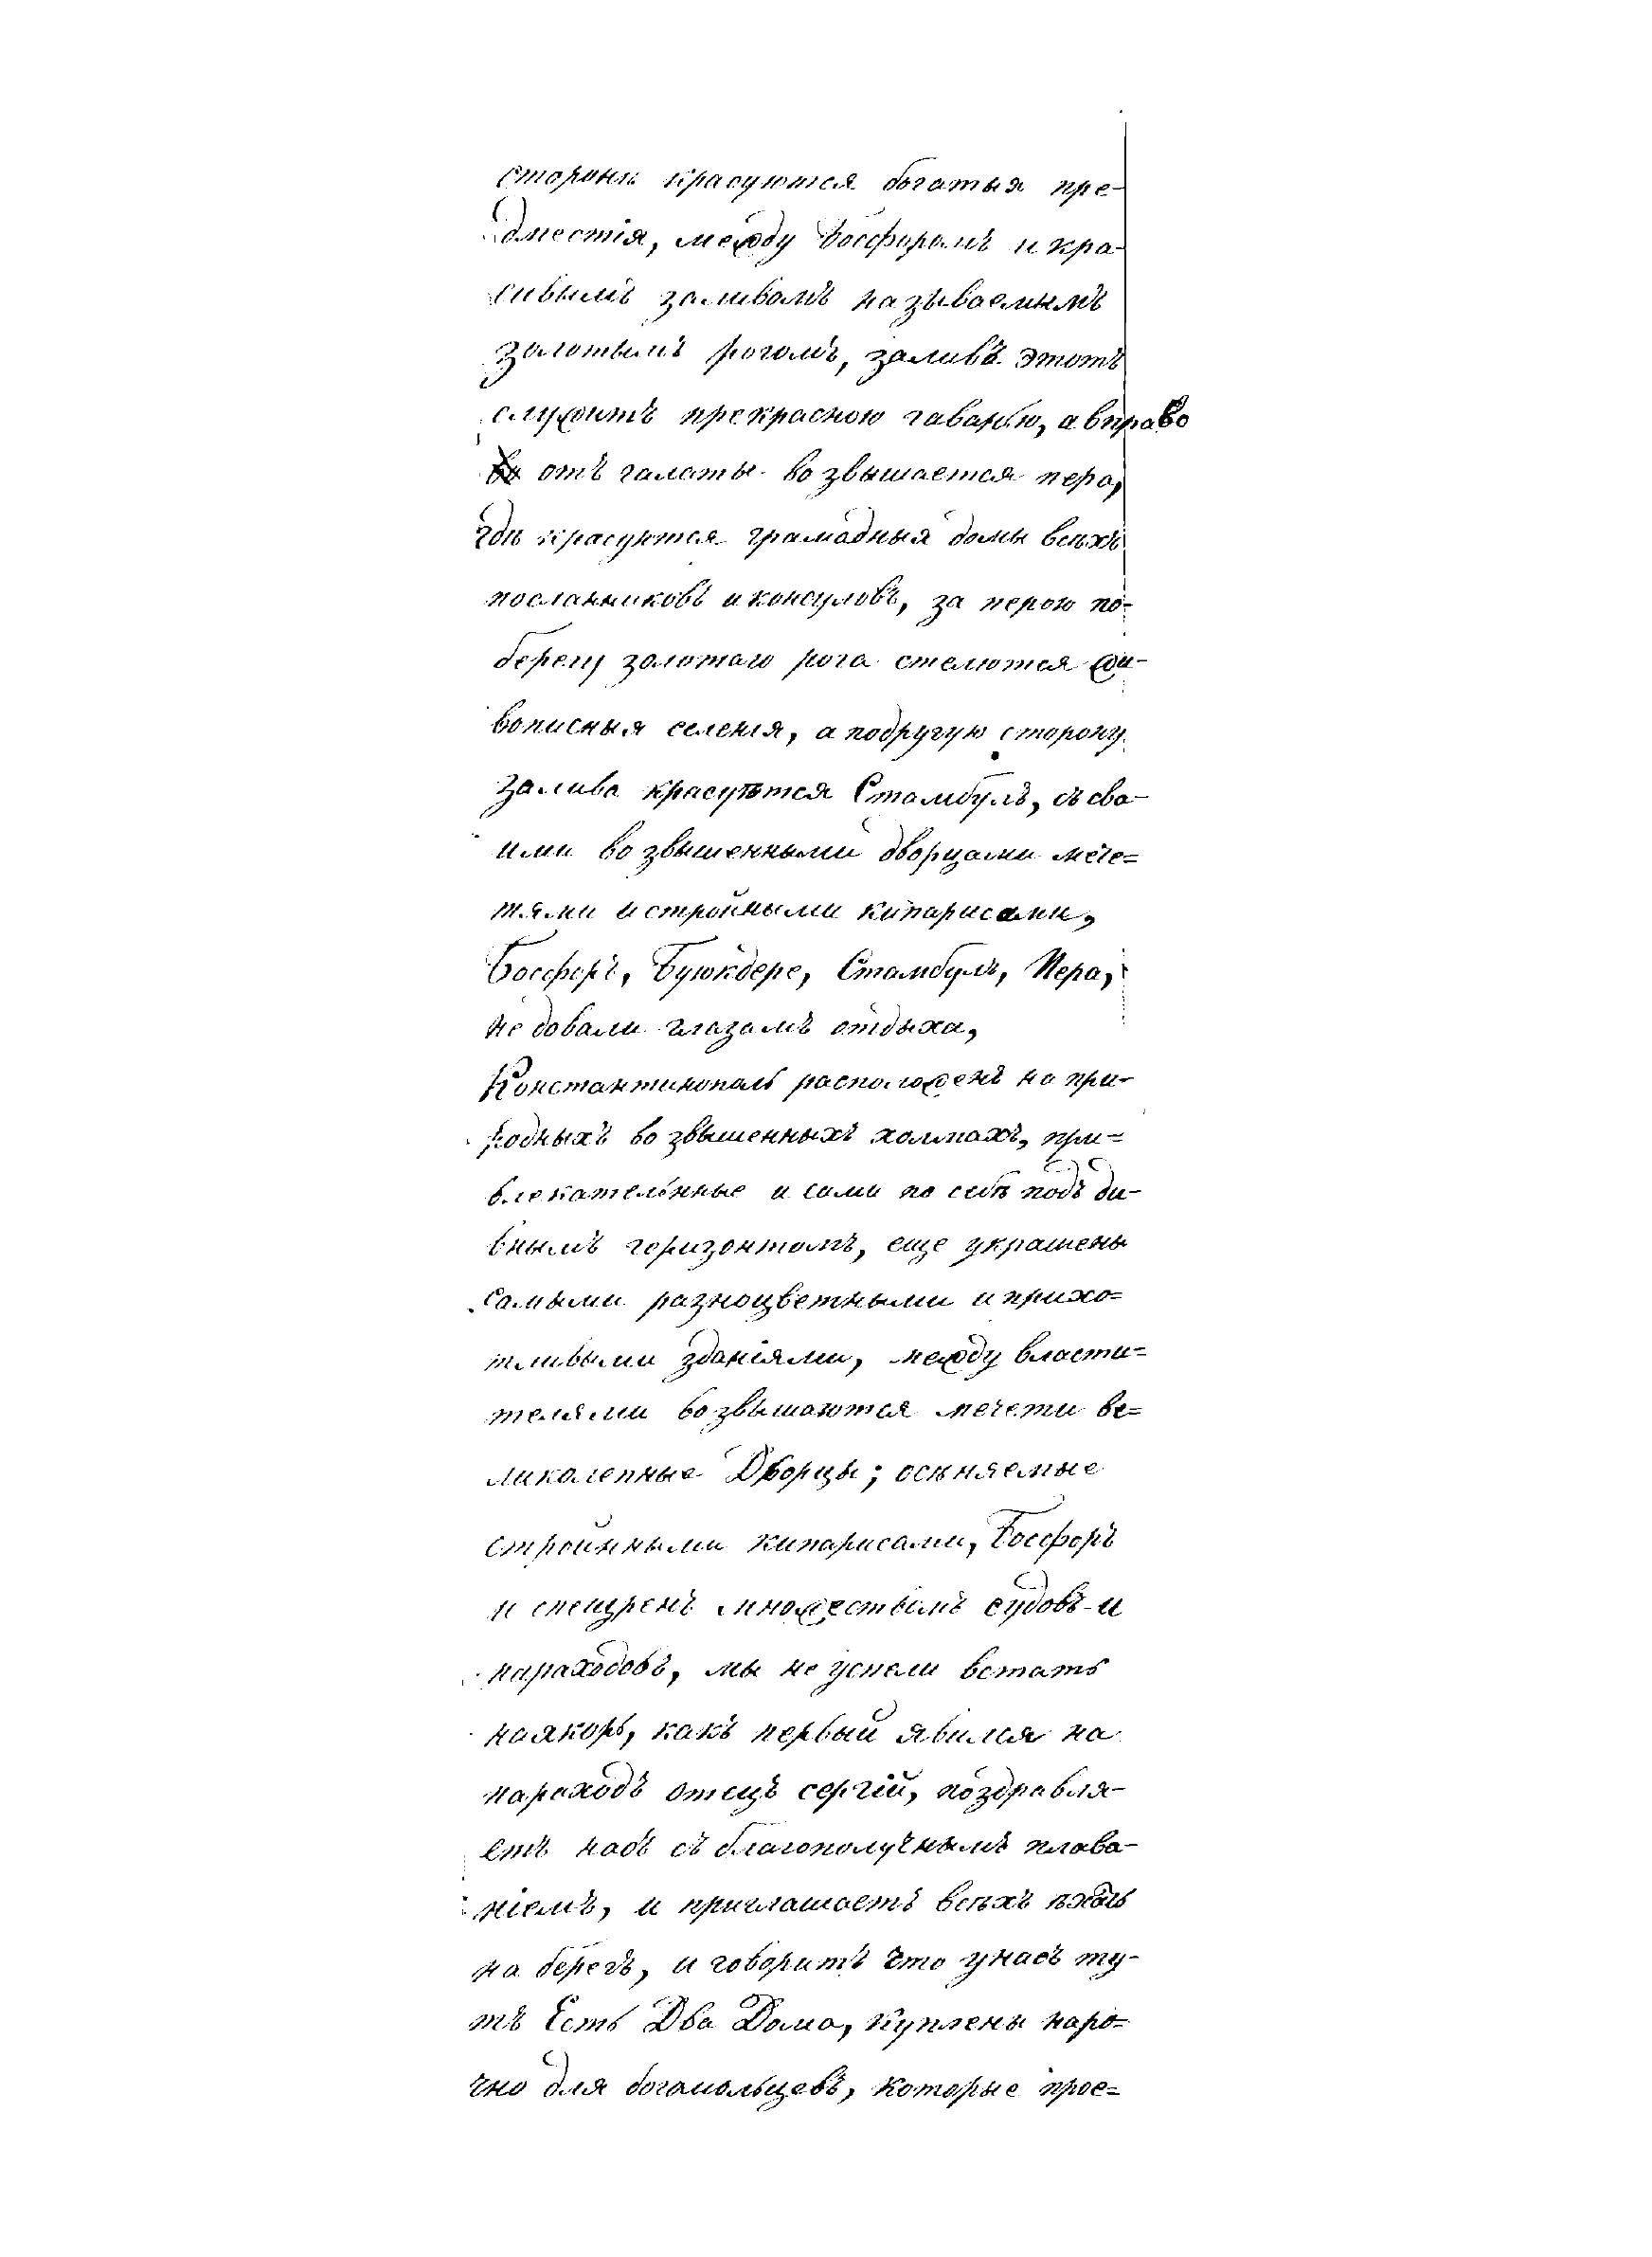 стороны красуются богатыя пре-
дместія, между Босфоромъ и кра-
сивымъ заливомъ называемымъ
золотымъ рогомъ, заливъ этотъ
служитъ прекрасною гаванью, а вправо
отъ галаты возвышается пера,
гдѣ красуются грамадныя домы всѣхъ
посланниковъ и консуловъ, за перою по-
берегу золотаго рога стелются жи-
вописныя селенія, а подругую сторону
залива красуѣтся Стамбулъ, съ сво-
ими возвышенными дворцами мече=
тями и стройными кипарисами,
Босфоръ, Буюкдере, Стамбулъ, Пера,
не довали глазамъ отдыха,
Константинополь расположенъ на при-
родныхъ возвышенныхъ холмахъ, при=
влекательные и сами по себѣ подъ ди-
внымъ горизонтомъ, еще украшены
самыми разноцветными и прихо=
тливыми зданіями, между власти=
телями возвышаются мечети ве=
ликолепные Дворцы; осѣняемые
стройными кипарисами, Босфоръ
и спещренъ множествомъ судовъ и
параходовъ, мы не успели встать
наякорь, какъ первый явился на
параходъ отецъ сергій, поздравля-
етъ насъ съ благополучнымъ плава-
ніемъ, и приглашаетъ всѣхъ ѣхать
на берегъ, и говоритъ что унасъ ту-
тъ Есть Два Дома, куплены наро=
чно для богомольцевъ, которые прое=